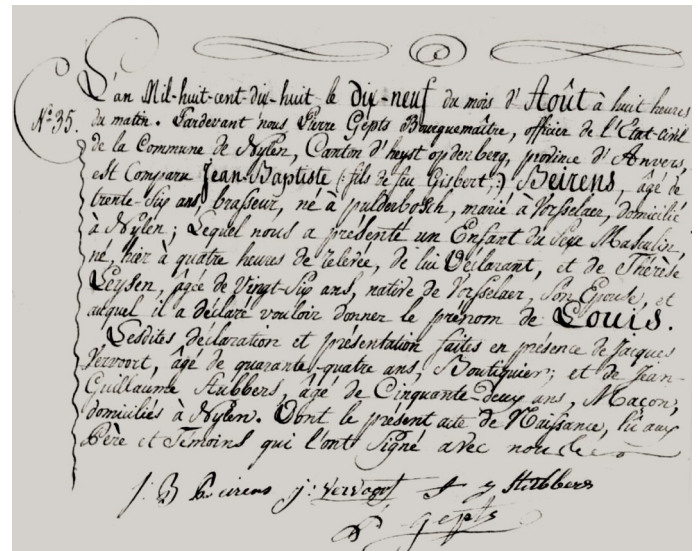 L'an Mil-huit-cent-dix-huit le dix-neuf du mois d'Août à huit heures
Nº 35. du matin. Pardevant nous Pierre Gepts Bourguemaître, officier de l'Etat-civil
de la Commune de Nylen, Canton d'heyst opdenberg, province d'Anvers,
est Comparu Jean-Baptiste (: fils de feu Gisbert, :) Beirens, âgé de
trente-six ans, brasseur, né à pulderbosch, marié à Vorsselaer, domicilié
à Nylen; Lequel nous a présenté un Enfant du Sexe Masculin,
né, hier à quatre heures de relevée, de lui Déclarant, et de Thérèse
Leysen, âgée de Vingt-Six ans, native de Vorsselaer, Son Epouse, et
auquel il a déclaré vouloir donner le prénom de Louis.
Lesdites déclaration et présentation faites en présence de Jacques
Vervoort, âgé de quarante-quatre ans, Boutiquier; et de Jean-
Guillaume Stubbers, âgé de Cinquante-deux ans, Maçon;
domiciliés à Nylen. Dont le présent acte de Naissance, lu aux
Père et Témoins qui l'ont Signé avec nous
J: B Beirens j: Vervoort J g Stubbers
P Gepts